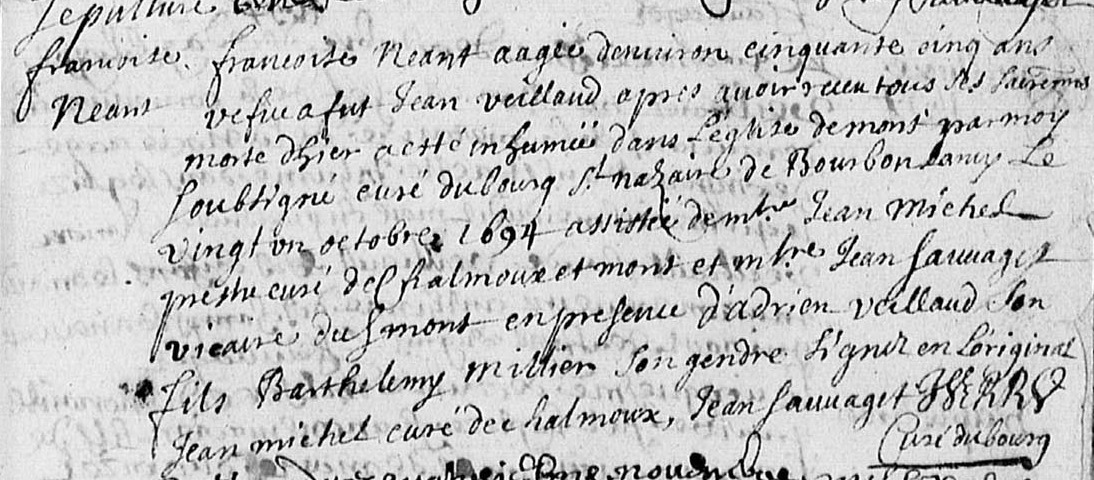 sepulture
francoise. francoise Neant aagée denviron cinquante cinq ans
Neant vefve a fut Jean veillaud apres avoir receu tous ses sacremens
morte dhier a esté inhumée dans L'eglise de mont par moy
soubsigné curé du bourg St nazaire de Bourbon Lancy Le
vingt un octobre 1694 assistée de mtre Jean Michel
prestre curé de Chalmoux et mont et mtre Jean sauvaget
vicaire dud mont en presence d'adrien veillaud son
fils Barthelemy millier son gendre signéz en L'original
Jean michel curé de chalmoux, Jean sauvaget
Curé du bourg